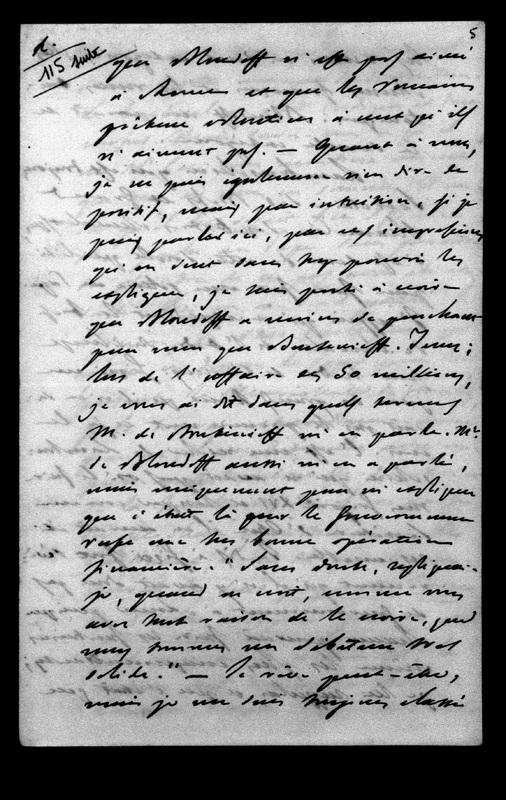 5
115 suite
que Bloudoff n'est pas aimé
à Rome et que les Romains
prêtent à tout ce qu'ils
n'aiment pas. — Quant à moi,
je ne puis également rien dire de
positif, mais par intuition, si je
puis parler ici, par ces impressions
qui se sans trop pouvoir les
expliquer, je suis porté à croire
que Bloudoff a moins de penchant
pour nous que Boutenieff. Tenez ;
lors de l'affaire des 50 millions,
je vous ai dit dans quels termes
M. de Boutenieff m'en parla. Mr.
de Bloudoff aussi m'en a parlé,
mais uniquement pour m'expliquer
que c'était là pour le Gouvernement
russe une très bonne opération
financière. "Sans doute, répliquai-
je, quand on croit, comme vous
avez tout raison de le croire, que
nous sommes un débiteur très
solide." — Je rêve peut-être,
mais je me suis toujours